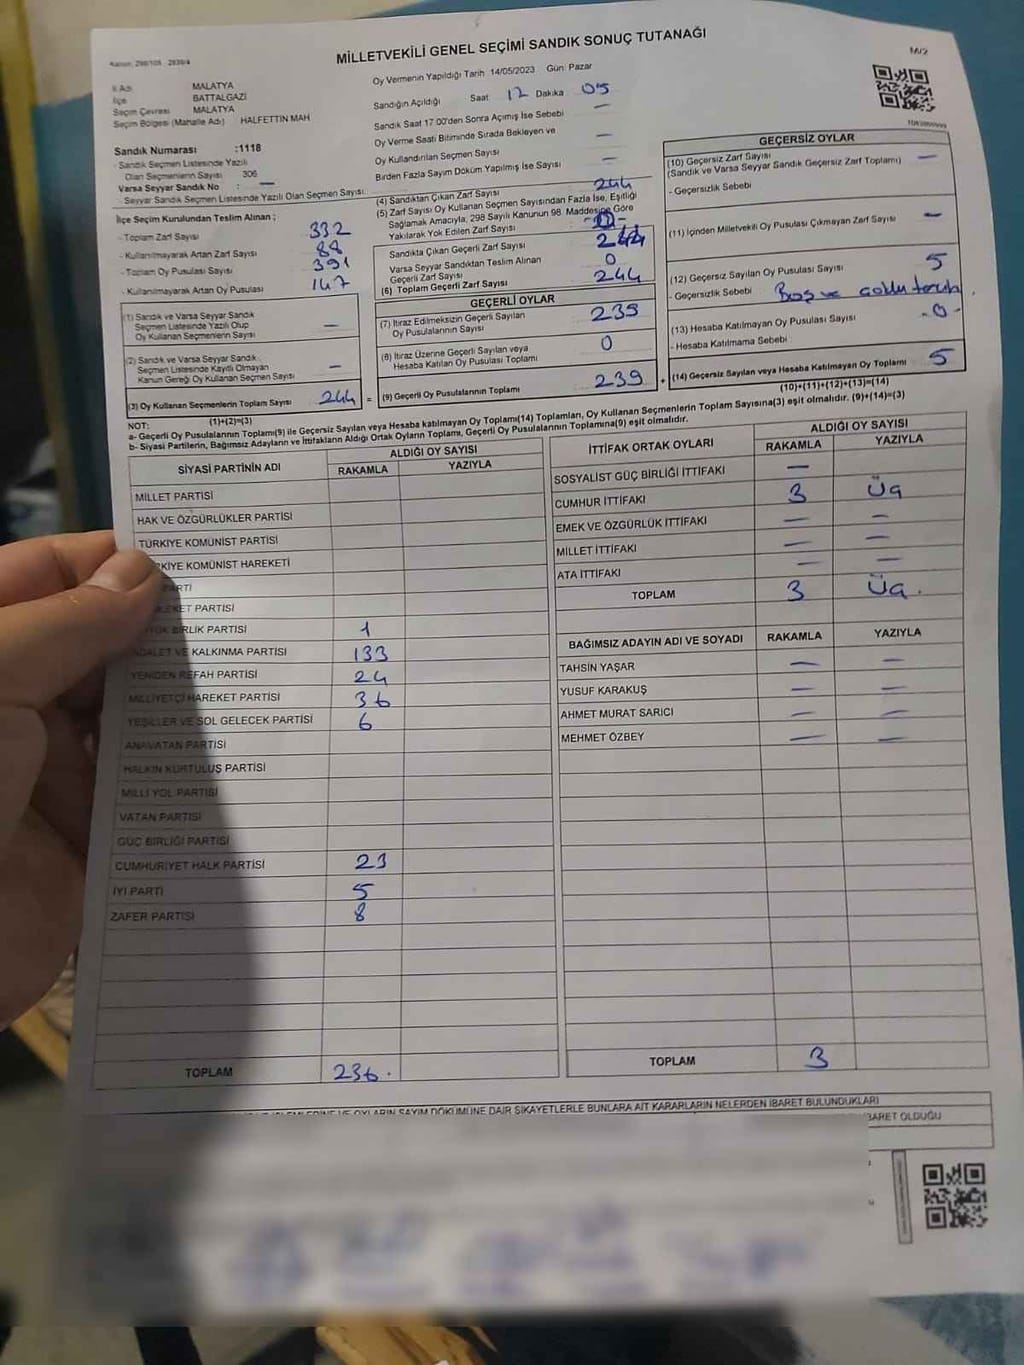 Kanun: 298/105 , 2839/4
MİLLETVEKİLİ GENEL SEÇİMİ SANDIK SONUÇ TUTANAĞI
M/2
İl Adı MALATYA
İlçe BATTALGAZİ
Seçim Çevresi MALATYA
Seçim Bölgesi (Mahalle Adı) HALFETTİN MAH
Sandık Numarası :1118
- Sandık Seçmen Listesinde Yazılı
Olan Seçmenlerin Sayısı 306
Varsa Seyyar Sandık No : —
- Seyyar Sandık Seçmen Listesinde Yazılı Olan Seçmen Sayısı
Oy Vermenin Yapıldığı Tarih 14/05/2023 Gün: Pazar
Sandığın Açıldığı Saat 17 Dakika 05
Sandık Saat 17.00'den Sonra Açımış İse Sebebi —
Oy Verme Saati Bitiminde Sırada Bekleyen ve
Oy Kullandırılan Seçmen Sayısı —
Birden Fazla Sayım Döküm Yapılmış İse Sayısı —
İlçe Seçim Kurulundan Teslim Alınan ;
- Toplam Zarf Sayısı 332
- Kullanılmayarak Artan Zarf Sayısı 88
- Toplam Oy Pusulası Sayısı 391
- Kullanılmayarak Artan Oy Pusulası 147
(1) Sandık ve Varsa Seyyar Sandık
Seçmen Listesinde Yazılı Olup
Oy Kullanan Seçmenlerin Sayısı —
(2) Sandık ve Varsa Seyyar Sandık
Seçmen Listesinde Kayıtlı Olmayan
Kanun Gereği Oy Kullanan Seçmen Sayısı —
(3) Oy Kullanan Seçmenlerin Toplam Sayısı 244
(1)+(2)=(3)
(4) Sandıktan Çıkan Zarf Sayısı 244
(5) Zarf Sayısı Oy Kullanan Seçmen Sayısından Fazla İse, Eşitliği
Sağlamak Amacıyla, 298 Sayılı Kanunun 98. Maddesine Göre
Yakılarak Yok Edilen Zarf Sayısı
Sandıkta Çıkan Geçerli Zarf Sayısı 244
Varsa Seyyar Sandıktan Teslim Alınan
Geçerli Zarf Sayısı 0
(6) Toplam Geçerli Zarf Sayısı 244
GEÇERLİ OYLAR
(7) İtiraz Edilmeksizin Geçerli Sayılan
Oy Pusulalarının Sayısı 239
(8) İtiraz Üzerine Geçerli Sayılan veya
Hesaba Katılan Oy Pusulası Toplamı 0
= (9) Geçerli Oy Pusulalarının Toplamı 239 +
GEÇERSİZ OYLAR
(10) Geçersiz Zarf Sayısı —
(Sandık ve Varsa Seyyar Sandık Geçersiz Zarf Toplamı)
- Geçersizlik Sebebi
(11) İçinden Milletvekili Oy Pusulası Çıkmayan Zarf Sayısı —
(12) Geçersiz Sayılan Oy Pusulası Sayısı 5
- Geçersizlik Sebebi Boş ve çoklu tercih
(13) Hesaba Katılmayan Oy Pusulası Sayısı -0-
- Hesaba Katılmama Sebebi
(14) Geçersiz Sayılan veya Hesaba Katılmayan Oy Toplamı 5
(10)+(11)+(12)+(13)=(14)
NOT:
a- Geçerli Oy Pusulalarının Toplamı(9) ile Geçersiz Sayılan veya Hesaba katılmayan Oy Toplamı(14) Toplamları, Oy Kullanan Seçmenlerin Toplam Sayısına(3) eşit olmalıdır. (9)+(14)=(3)
b- Siyasi Partilerin, Bağımsız Adayların ve İttifakların Aldığı Ortak Oyların Toplamı, Geçerli Oy Pusulalarının Toplamına(9) eşit olmalıdır.
SİYASİ PARTİNİN ADI ALDIĞI OY SAYISI
RAKAMLA YAZIYLA
MİLLET PARTİSİ
HAK VE ÖZGÜRLÜKLER PARTİSİ
TÜRKİYE KOMÜNİST PARTİSİ
RKİYE KOMÜNİST HAREKETİ
PARTİ
LEKET PARTİSİ
YÜK BİRLİK PARTİSİ 1
ADALET VE KALKINMA PARTİSİ 133
YENİDEN REFAH PARTİSİ 24
MİLLİYETÇİ HAREKET PARTİSİ 36
YEŞİLLER VE SOL GELECEK PARTİSİ 6
ANAVATAN PARTİSİ
HALKIN KURTULUŞ PARTİSİ
MİLLİ YOL PARTİSİ
VATAN PARTİSİ
GÜÇ BİRLİĞİ PARTİSİ
CUMHURİYET HALK PARTİSİ 23
İYİ PARTİ 5
ZAFER PARTİSİ 8
TOPLAM 236.
İTTİFAK ORTAK OYLARI ALDIĞI OY SAYISI
RAKAMLA YAZIYLA
SOSYALİST GÜÇ BİRLİĞİ İTTİFAKI —
CUMHUR İTTİFAKI 3 Üç
EMEK VE ÖZGÜRLÜK İTTİFAKI — —
MİLLET İTTİFAKI — —
ATA İTTİFAKI — —
TOPLAM 3 Üç.
BAĞIMSIZ ADAYIN ADI VE SOYADI RAKAMLA YAZIYLA
TAHSİN YAŞAR — —
YUSUF KARAKUŞ — —
AHMET MURAT SARICI — —
MEHMET ÖZBEY — —
TOPLAM 3
VE OYLARIN SAYIM DÖKÜMÜNE DAİR ŞİKAYETLERLE BUNLARA AİT KARARLARIN NELERDEN İBARET BULUNDUKLARI
İBARET OLDUĞU